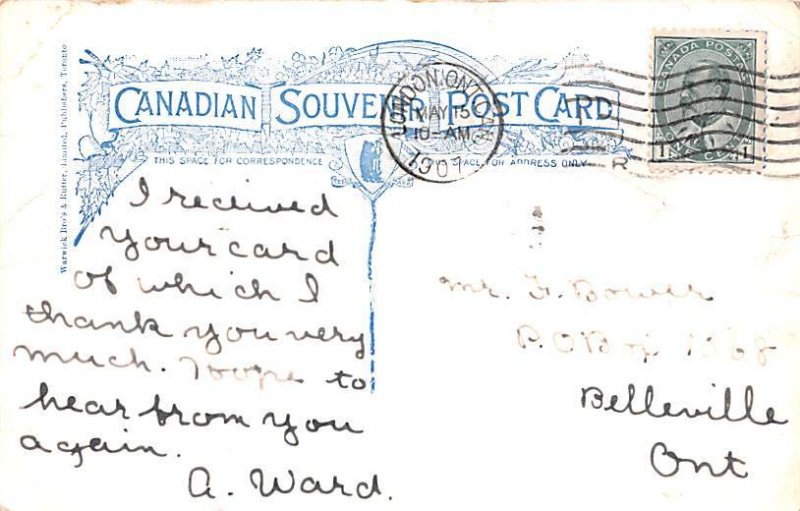 Warwick Bro's & Rutter, Limited, Publishers, Toronto
CANADIAN SOUVENIR POST CARD
THIS SPACE FOR CORRESPONDENCE
SPACE FOR ADDRESS ONLY
LONDON, ONT.
MAY 15
10-AM
1907
R
CANADA POSTAGE
1 ONE CENT 1
I received
your card
of which I
thank you very
much. Hope to
hear from you
again.
A. Ward.
Mr. F. Bower
P.O Box 1368
Belleville
Ont